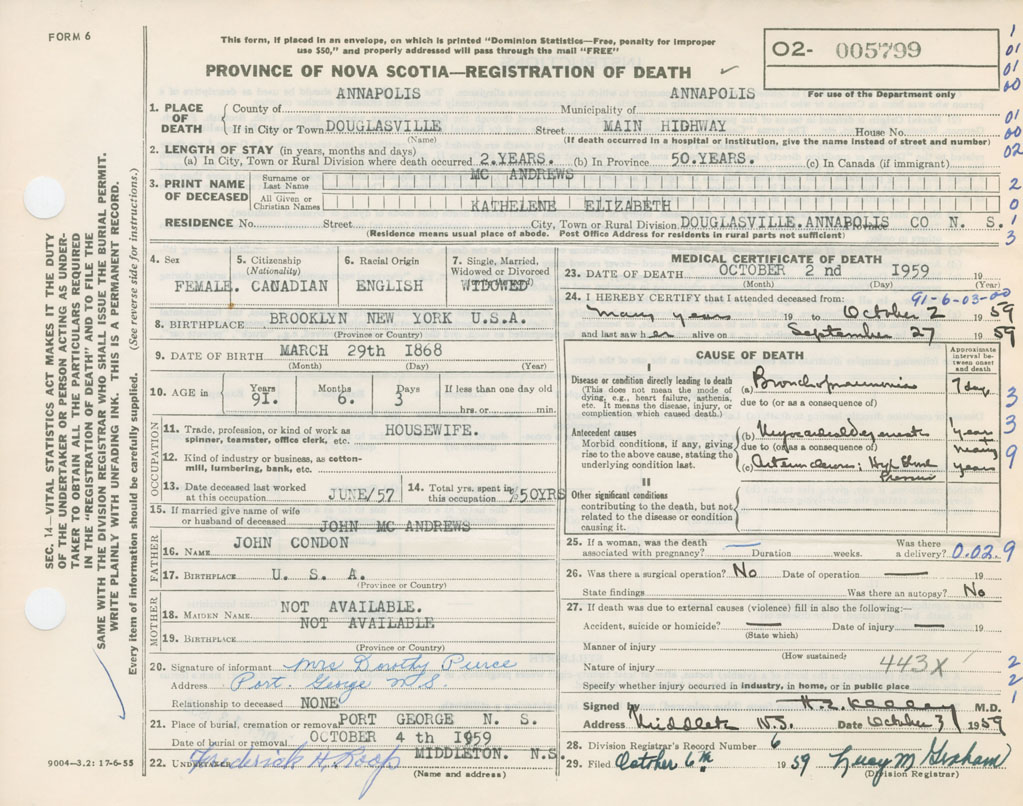 FORM 6
This form, if placed in an envelope, on which is printed "Dominion Statistics—Free, penalty for improper
use $50," and properly addressed will pass through the mail "FREE"
O2- 005799
PROVINCE OF NOVA SCOTIA—REGISTRATION OF DEATH
For use of the Department only
1. PLACE OF DEATH County of ANNAPOLIS Municipality of ANNAPOLIS
If in City or Town DOUGLASVILLE Street MAIN HIGHWAY House No.
(Name) (If death occurred in a hospital or institution, give the name instead of street and number)
2. LENGTH OF STAY (in years, months and days)
(a) In City, Town or Rural Division where death occurred 2.YEARS. (b) In Province 50.YEARS. (c) In Canada (if immigrant)
3. PRINT NAME OF DECEASED Surname or Last Name MC ANDREWS
All Given or Christian Names KATHELENE ELIZABETH
RESIDENCE No. Street City, Town or Rural Division DOUGLASVILLE.ANNAPOLIS CO N. S. Province
(Residence means usual place of abode. Post Office Address for residents in rural parts not sufficient)
4. Sex FEMALE.
5. Citizenship (Nationality) CANADIAN
6. Racial Origin ENGLISH
7. Single, Married, Widowed or Divorced WIDOWED
8. BIRTHPLACE BROOKLYN NEW YORK U.S.A.
(Province or Country)
9. DATE OF BIRTH MARCH 29th 1868
(Month) (Day) (Year)
10. AGE in Years 91. Months 6. Days 3 If less than one day old
hrs. or min.
OCCUPATION
11. Trade, profession, or kind of work as spinner, teamster, office clerk, etc. HOUSEWIFE.
12. Kind of industry or business, as cotton-mill, lumbering, bank, etc.
13. Date deceased last worked at this occupation JUNE/57
14. Total yrs. spent in this occupation 50YRS
15. If married give name of wife or husband of deceased JOHN MC ANDREWS
FATHER
16. NAME JOHN CONDON
17. BIRTHPLACE U. S. A.
(Province or Country)
MOTHER
18. MAIDEN NAME NOT AVAILABLE.
19. BIRTHPLACE NOT AVAILABLE
(Province or Country)
20. Signature of informant Mrs Dorothy Pierce
Address Port. George N.S.
Relationship to deceased NONE
21. Place of burial, cremation or removal PORT GEORGE N. S.
Date of burial or removal OCTOBER 4 th 1959
22. UNDERTAKER Frederick H. Roop MIDDLETON. N.S.
(Name and address)
MEDICAL CERTIFICATE OF DEATH
23. DATE OF DEATH OCTOBER 2 nd 1959 19
(Month) (Day) (Year)
91-6-03-00
24. I HEREBY CERTIFY that I attended deceased from:
many years 19 to October 2 1959
and last saw her alive on September 27 1959
CAUSE OF DEATH
Approximate interval between onset and death
I
Disease or condition directly leading to death
(This does not mean the mode of dying, e.g., heart failure, asthenia, etc. It means the disease, injury, or complication which caused death.)
(a) Bronchopneumonia 7 days
due to (or as a consequence of)
Antecedent causes
Morbid conditions, if any, giving rise to the above cause, stating the underlying condition last.
(b) Myocardial Degeneration years
due to (or as a consequence of)
(c) Arteriosclerosis; High Blood Pressure many years
II
Other significant conditions
contributing to the death, but not related to the disease or condition causing it.
25. If a woman, was the death associated with pregnancy? — Duration weeks. Was there a delivery? 0.02.9
26. Was there a surgical operation? No Date of operation — 19
State findings Was there an autopsy? No
27. If death was due to external causes (violence) fill in also the following:—
Accident, suicide or homicide? — Date of injury — 19
(State which)
Manner of injury
(How sustained)
Nature of injury 443X
Specify whether injury occurred in industry, in home, or in public place
Signed by M.D.
Address Middleton N.S. Date October 3 1959
28. Division Registrar's Record Number 6
29. Filed October 6th 1959 Lucy M Graham
(Division Registrar)
9004—3.2: 17-6-55
SEC. 14—VITAL STATISTICS ACT MAKES IT THE DUTY
OF THE UNDERTAKER OR PERSON ACTING AS UNDER-
TAKER TO OBTAIN ALL THE PARTICULARS REQUIRED
IN THE "REGISTRATION OF DEATH" AND TO FILE THE
SAME WITH THE DIVISION REGISTRAR WHO SHALL ISSUE THE BURIAL PERMIT.
WRITE PLAINLY WITH UNFADING INK. THIS IS A PERMANENT RECORD.
Every item of information should be carefully supplied. (See reverse side for instructions.)
1
01
01
00
01
00
02
2
0
1
3
3
3
9
2
2
1